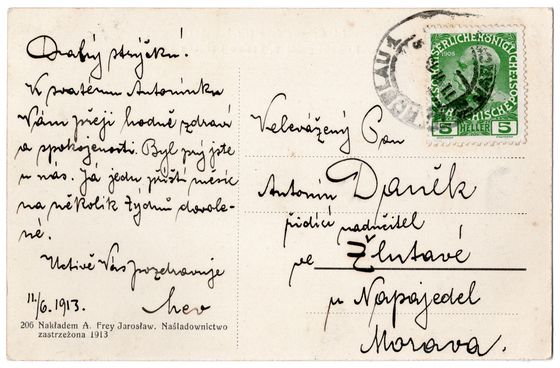 Drahý strýčku!
K svatému Antonínku
Vám přeji hodně zdraví
a spokojenosti. Byl prý jste
u nás. Já jedu příští měsíc
na několik týdnů dovole-
né.
Uctivě Vás pozdravuje
11/6 1913.
206 Nakładem A. Frey Jarosław. Naśladownictwo
zastrzeżona 1913
Velevážený Pan
Antonín Daněk
řídící nadučitel
ve Žlutavě
u Napajedel
Morava.
1908
5 HELLER 5